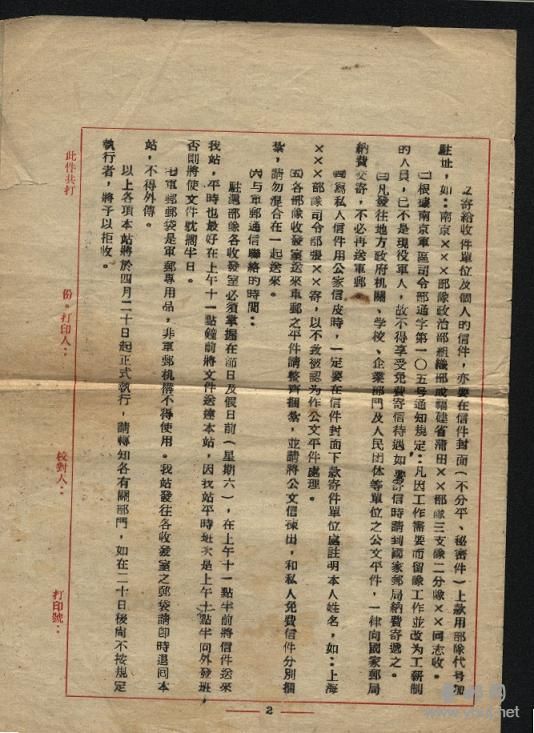 2.寄給收件單位及個人的信件，亦要在信件封面（不分平、秘密件）上款用部隊代号加
駐址，如：南京×××部隊政治部組織部或福建省蒲田××部隊三支隊二分隊××同志收。
㈡根據南京軍區司令部通字第一〇五号通知規定：凡因工作需要而留隊工作並改为工薪制
的人員，已不是現役軍人，故不得享受免費寄信待遇如要寄信時請到國家郵局納費寄遞之。
㈢凡發往地方政府机關、学校、企業部門及人民团体等單位之公文平件，一律向國家郵局
納費交寄，不必再送軍郵。
㈣爲私人信件用公家信皮時，一定要在信件封面下款寄件單位處註明本人姓名，如：上海
×××部隊司令部張××寄，以不致被認为作公文平件處理。
㈤各部隊收發室送來軍郵之平件請整齊捆紮，並請將公文信揀出，和私人免費信件分別捆
紮，請勿混合在一起送來。
㈥与軍郵通信聯絡的時間：
駐滬部隊各收發室必須掌握在節日及假日前（星期六），在上午十一點半前將信件送來
我站，平時也最好在上午十一點鐘前將文件送達本站，因我站平時班次是上午十一點半向外發班，
否則將使文件躭擱半日。
㈦軍郵郵袋是軍郵專用品，非軍郵机構不得使用。我站發往各收發室之郵袋請卽時退回本
站，不得外傳。
以上各項本站將於四月二十日起正式執行，請轉知各有關部門，如在二十日後尚不按規定
執行者，將予以拒收。
此件共打
份。打印人：
校對人：
打印號：
2